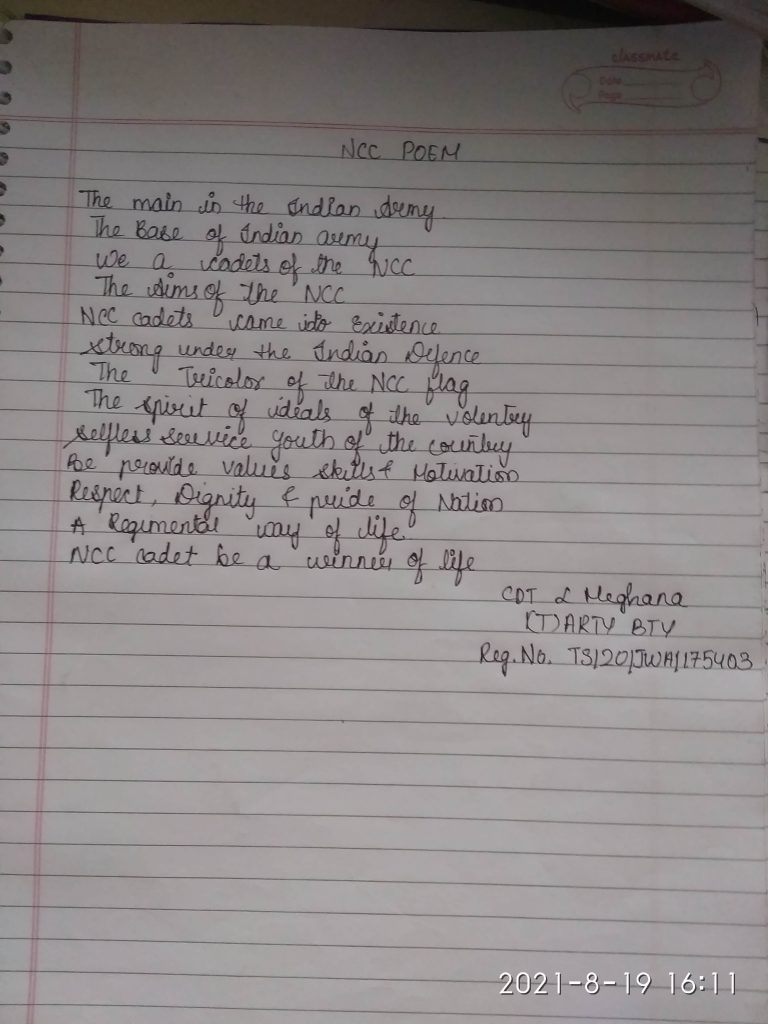 classmate
Date
Page
NCC POEM
The main in the Indian Army
The Base of Indian army
We a cadets of the NCC
The Aims of the NCC
NCC cadets came into Existence
strong under the Indian Defence
The Tricolor of the NCC flag
The spirit of ideals of the volentry
selfless service youth of the country
Be provide values skills & Motivation
Respect, Dignity & pride of Nation
A Regimental way of life.
NCC cadet be a winner of life
CDT L Meghana
(T) ARTY BTY
Reg. No. TS/20/JWA/175403
2021-8-19 16:11